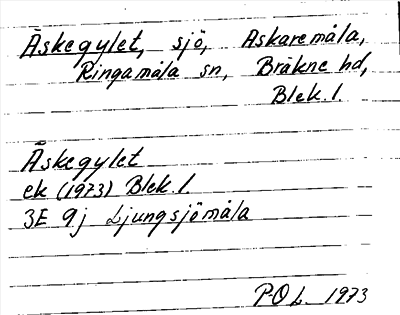 Äskegylet, sjö, Askaremåla,
Ringamåla sn, Bräkne hd,
Blek. l.
Äskegylet
ek (1973) Blek. l.
3E 9j Ljungsjömåla
P.O.L. 1973